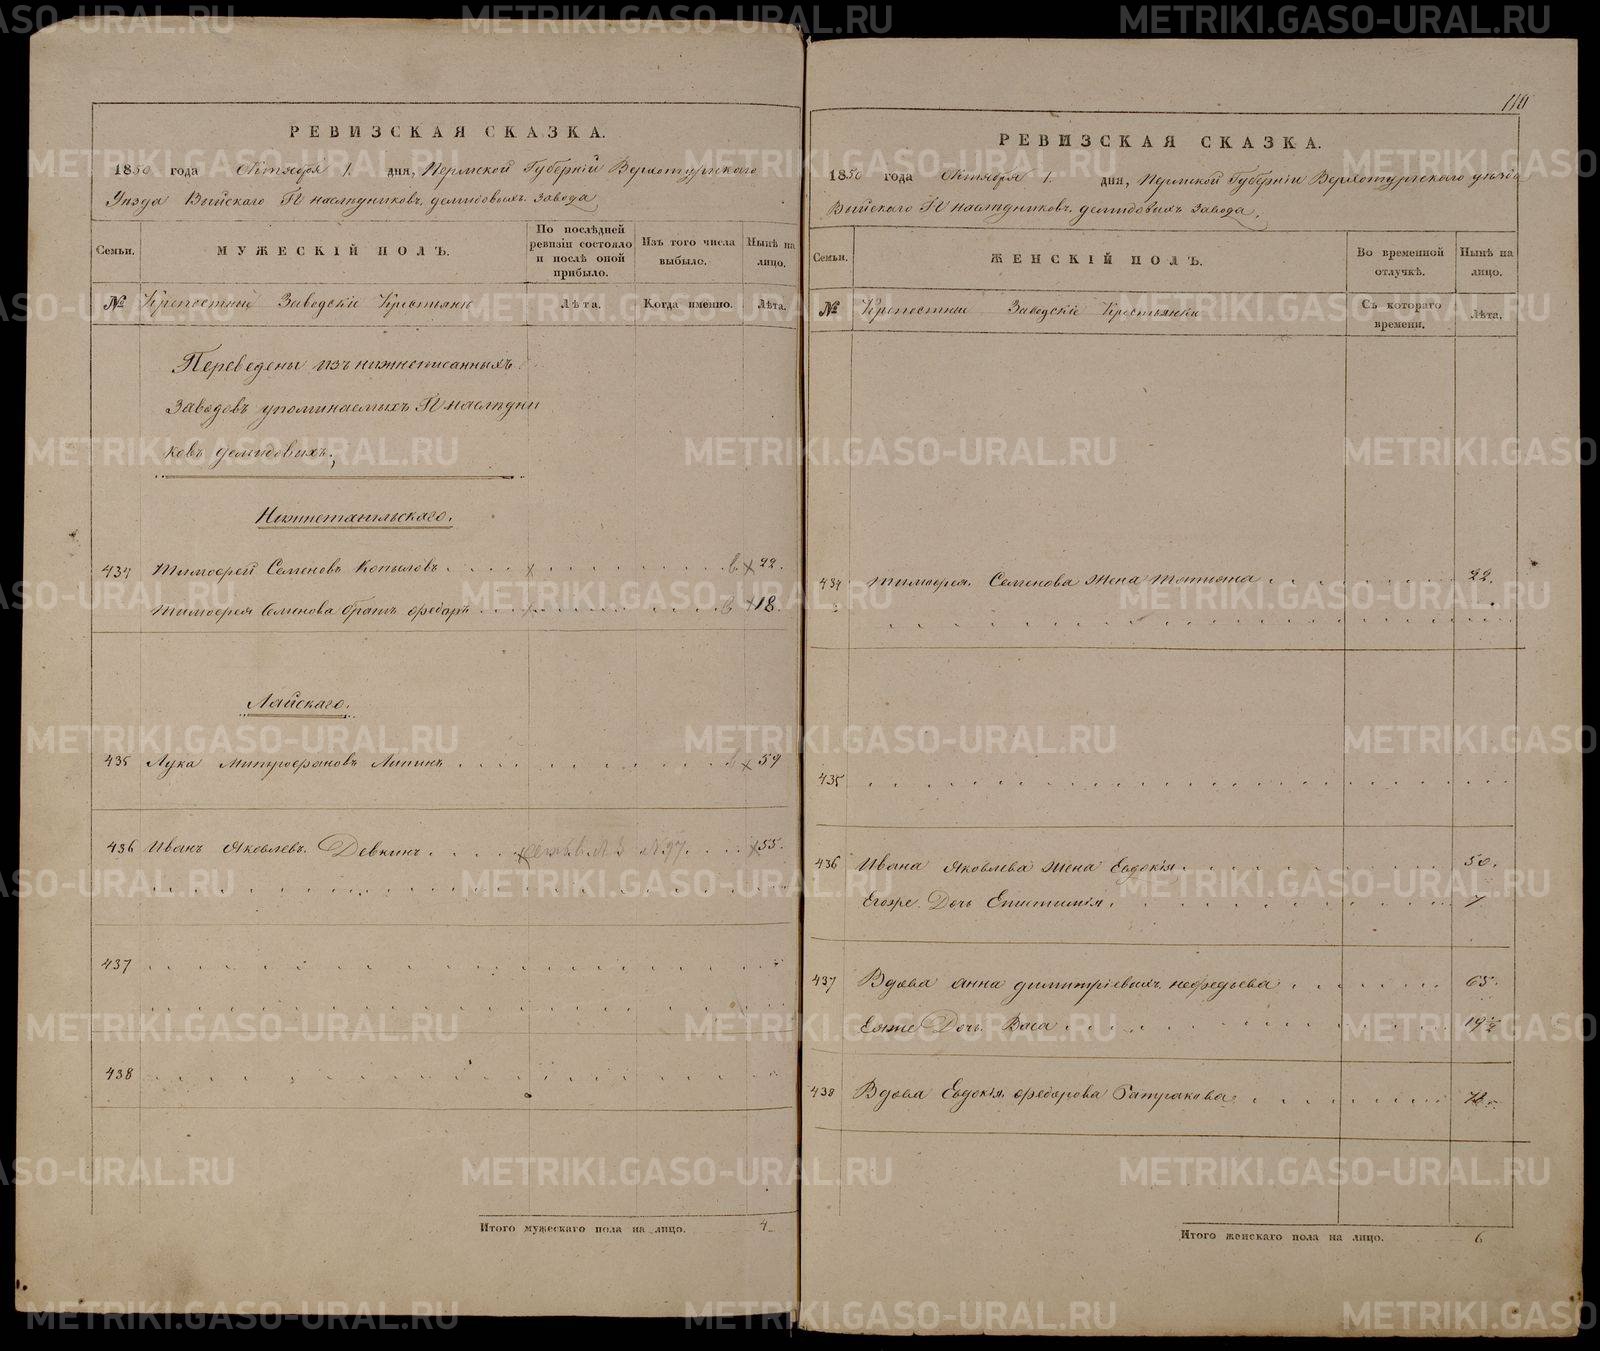 РЕВИЗСКАЯ СКАЗКА.
1850 года Октября 1. дня, Пермской Губерніи Верхотурскаго
Уезда Выйскаго Гг наследниковъ демидовыхъ завода
Семьи. МУЖЕСКІЙ ПОЛЪ. По послѣдней ревизіи состояло и послѣ оной прибыло. Изъ того числа выбыло. Нынѣ на лицо.
№ Крепостные Заводскіе Крестьяне Лѣта. Когда именно. Лѣта.
Переведены изъ нижеписанныхъ
Заводовъ упоминаемыхъ Гг наследни
ковъ демидовыхъ;
Нижнетагильскаго.
434 Тимофей Семеновъ Копыловъ 22.
Тимофея Семенова братъ Федоръ 18.
Лайскаго.
435 Лука Митрофановъ Липинъ 59
436 Иванъ Яковлевъ Девкинъ 55.
437
438
Итого мужескаго пола на лицо. 4
110
РЕВИЗСКАЯ СКАЗКА.
1850 года Октября 1. дня, Пермской Губерніи Верхотурскаго уезда
Выйскаго Гг наследниковъ демидовыхъ завода,
Семьи. ЖЕНСКІЙ ПОЛЪ. Во временной отлучкѣ. Нынѣ на лицо.
№ Крепостные Заводскіе Крестьянки Съ котораго времени. Лѣта.
434 Тимофея Семенова Жена Татиана 22.
435
436 Ивана Яковлева Жена Евдокія 50.
Егоже Дочь Епистимія 7
437 Вдова Анна димитріевыхъ нефедьева 65.
Еяже Дочь Васа 19½
438 Вдова Евдокія Федорова Батракова
Итого женскаго пола на лицо. 6
METRIKI.GASO-URAL.RU